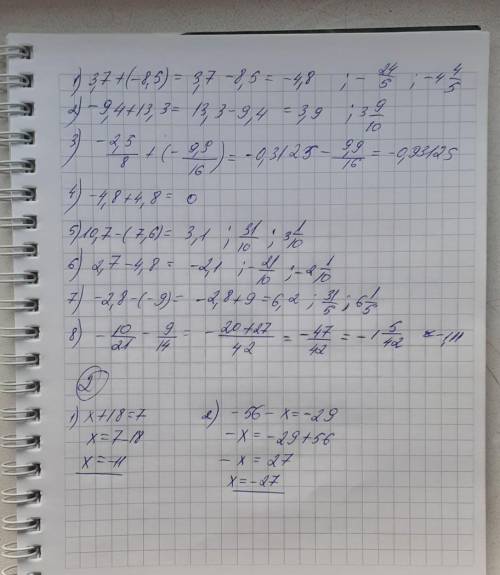 1) 3,7+(-8,5)= 3,7-8,5=-4,8 ; -24/5 ; -4 4/5
2) -9,4+13,3= 13,3-9,4 =3,9 ; 3 9/10
3) -2,5/8 + (-9,9/16)= -0,3125 - 9,9/16 = -0,93125
4) -4,8+4,8= 0
5) 10,7-(7,6)= 3,1 ; 31/10 ; 3 1/10
6) 2,7-4,8= -2,1 ; -21/10 ; -2 1/10
7) -2,8-(-9)= -2,8+9=6,2 ; 31/5 ; 6 1/5
8) -10/21 - 9/14 = -20+27/42 = -47/42 = -1 5/42 ≈-1,11
2
1) x+18=7
x=7-18
x=-11
2) -56-x=-29
-x=-29+56
-x=27
x=-27